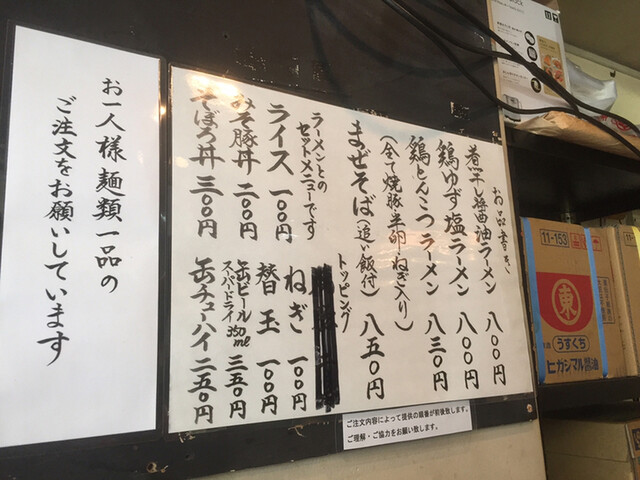 お品書き
煮干し醤油ラーメン 八〇〇円
鶏ゆず塩ラーメン 八〇〇円
鶏とんこつラーメン 八三〇円
(全て焼豚・半卵・ねぎ入り)
まぜそば(追い飯付) 八五〇円
トッピング
ねぎ 一〇〇円
替玉 一〇〇円
缶ビール 三五〇円
スーパードライ 350ml
缶チューハイ 二五〇円
ラーメンとの
セットメニューです
ライス 一〇〇円
みそ豚丼 二〇〇円
そぼろ丼 三〇〇円
お一人様麺類一品の
ご注文をお願いしています
ご注文内容によって提供の順番が前後致します。
ご理解・ご協力をお願い致します。
11-153
東
うすくち
ヒガシマル醤油